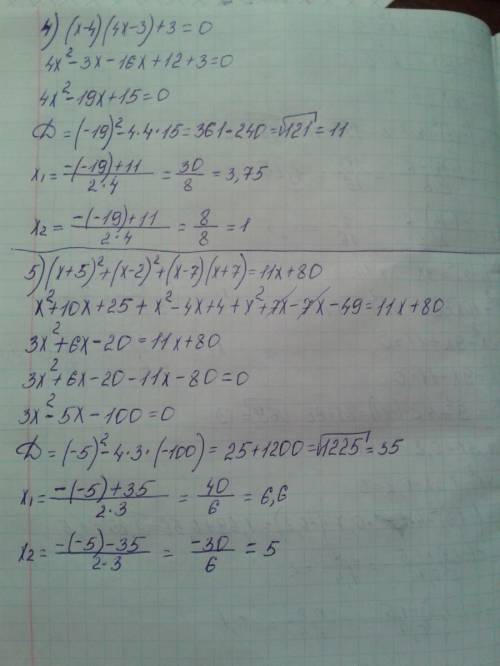 4) (x-4)(4x-3)+3=0
4x²-3x-16x+12+3=0
4x²-19x+15=0
D=(-19)²-4·4·15=361-240=√121=11
x₁=-(-19)+11/2·4=30/8=3,75
x₂=-(-19)+11/2·4=8/8=1
5) (x+5)²+(x-2)²+(x-7)(x+7)=11x+80
x²+10x+25+x²-4x+4+x²+7x-7x-49=11x+80
3x²+6x-20=11x+80
3x²+6x-20-11x-80=0
3x²-5x-100=0
D=(-5)²-4·3·(-100)=25+1200=√1225=35
x₁=-(-5)+35/2·3=40/6=6,6
x₂=-(-5)-35/2·3=-30/6=5